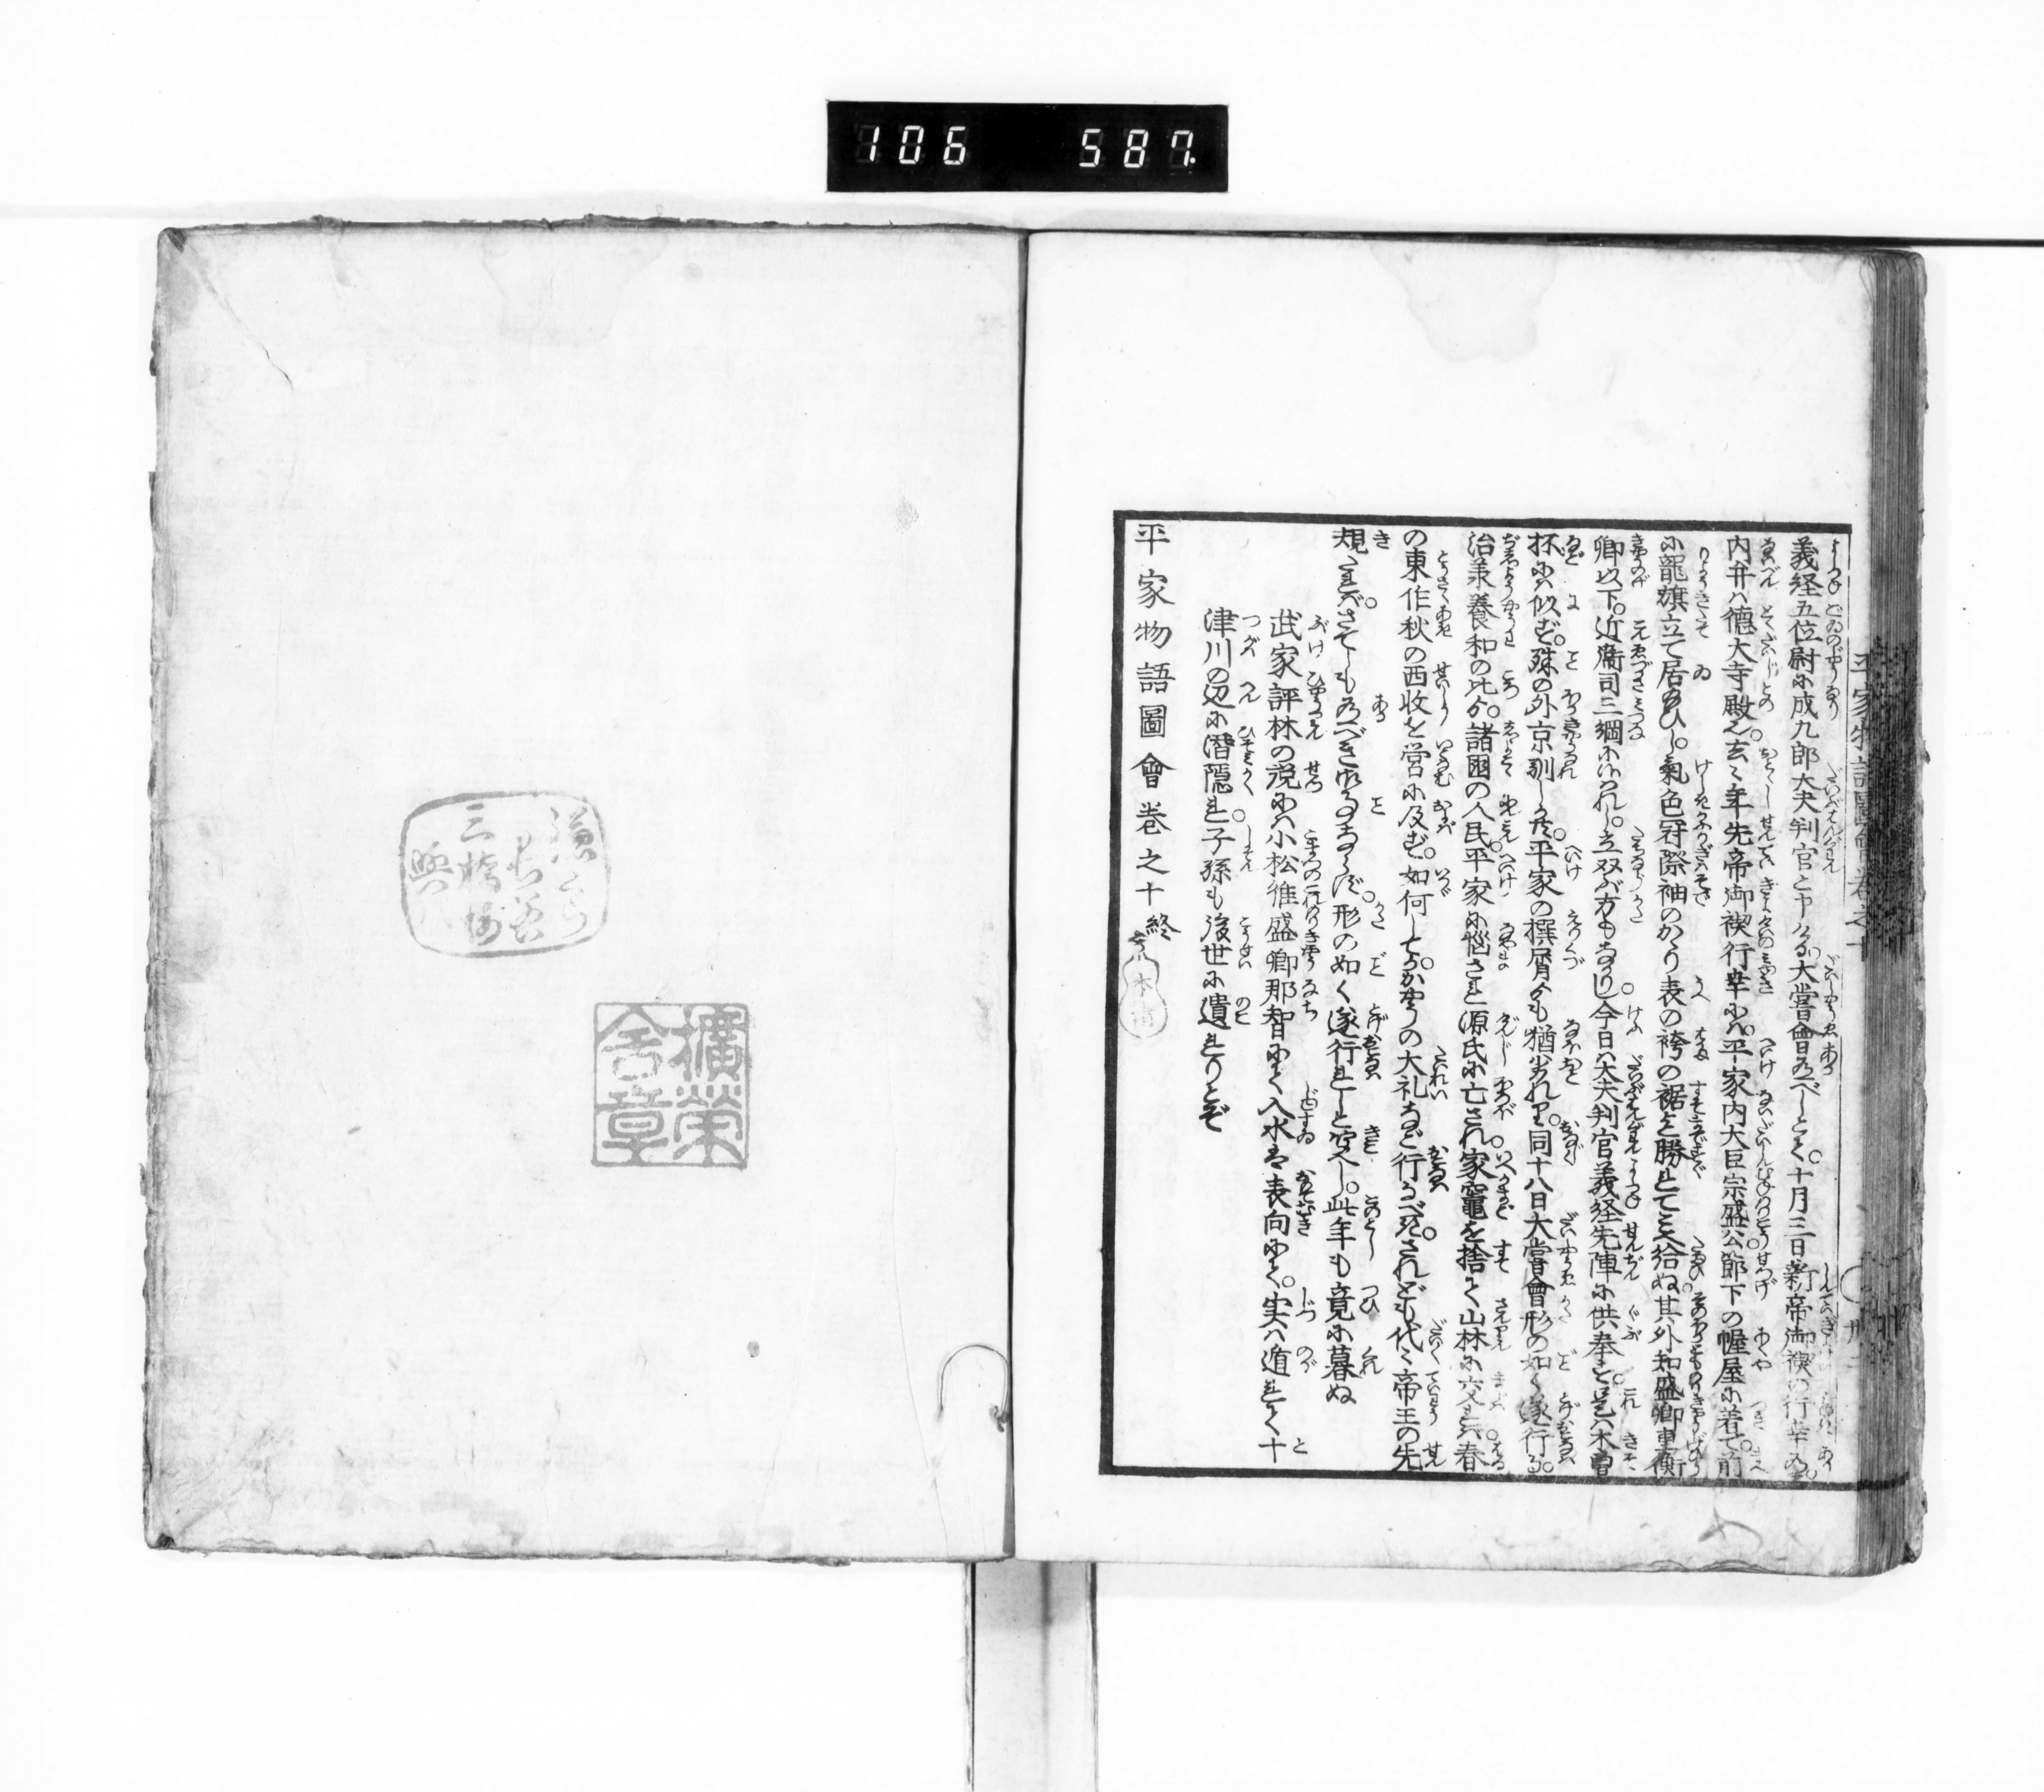 106 587
義経五位尉に成九郎大夫判官とぞ申ける大嘗會あるべしとて。十月三日新帝御禊の行幸あり。
内弁は徳大寺殿也。去々年先帝御禊行幸には。平家内大臣宗盛公節下の幄屋に着て。前
に龍旗立て居給ひし。氣色冠際袖のかゝり表の袴の裾迄勝れて見え給ぬ其外知盛卿重衡
卿以下。近衛司三綱に候はれし。立双ぶ方もなかりし今日は大夫判官義経先陣に供奉を。是は木曽
抔には似ず。殊の外京馴しかども。平家の撰屑よりも猶劣れり。同十八日大嘗會形の如く遂行る。
治承養和の比より。諸國の人民。平家に悩され源氏に亡され。家竈を捨て山林に交れば。春
の東作秋の西收を営に及ばず。如何してかかやうの大礼など行るべき。されども代々帝王の先
規なれば。さてしも有べき事ならず。形の如く遂行れしと聞へし。此年も竟に暮ぬ
武家評林の説には小松維盛卿那智にて入水は表向にて。実は遁れて十
津川の辺に潜隠れ。子孫も後世に遺れりとぞ
平家物語圖會卷之十終
擴榮
舎章